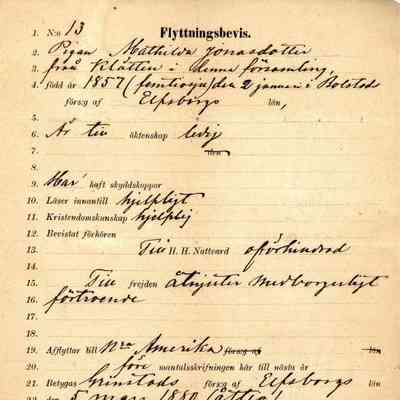 1. N:o 13 Flyttningsbevis.
2. Pigan Mathilda Jonasdotter
3. från Klåtten i denna församling,
4. född år 1857 (femtiosju) den 2 januari i Bolstads
förs:g af Elfsborgs län,
5.
6. Är till äktenskap ledig
7. den
8.
9. Har haft skyddskoppor
10. Läser innantill hjelpligt
11. Kristendomskunskap hjelplig
12. Bevistat förhören
13. Till H. H. Nattvard oförhindrad
14.
15. Till frejden åtnjuter medborgerligt
16. förtroende
17.
18.
19. Afflyttar till Nra Amerika förs:g af län
20. före mantalsskrifningen här till nästa år
21. Betygas Grinstads förs:g af Elfsborgs län
22. den 5 mars 1880 (åttio)